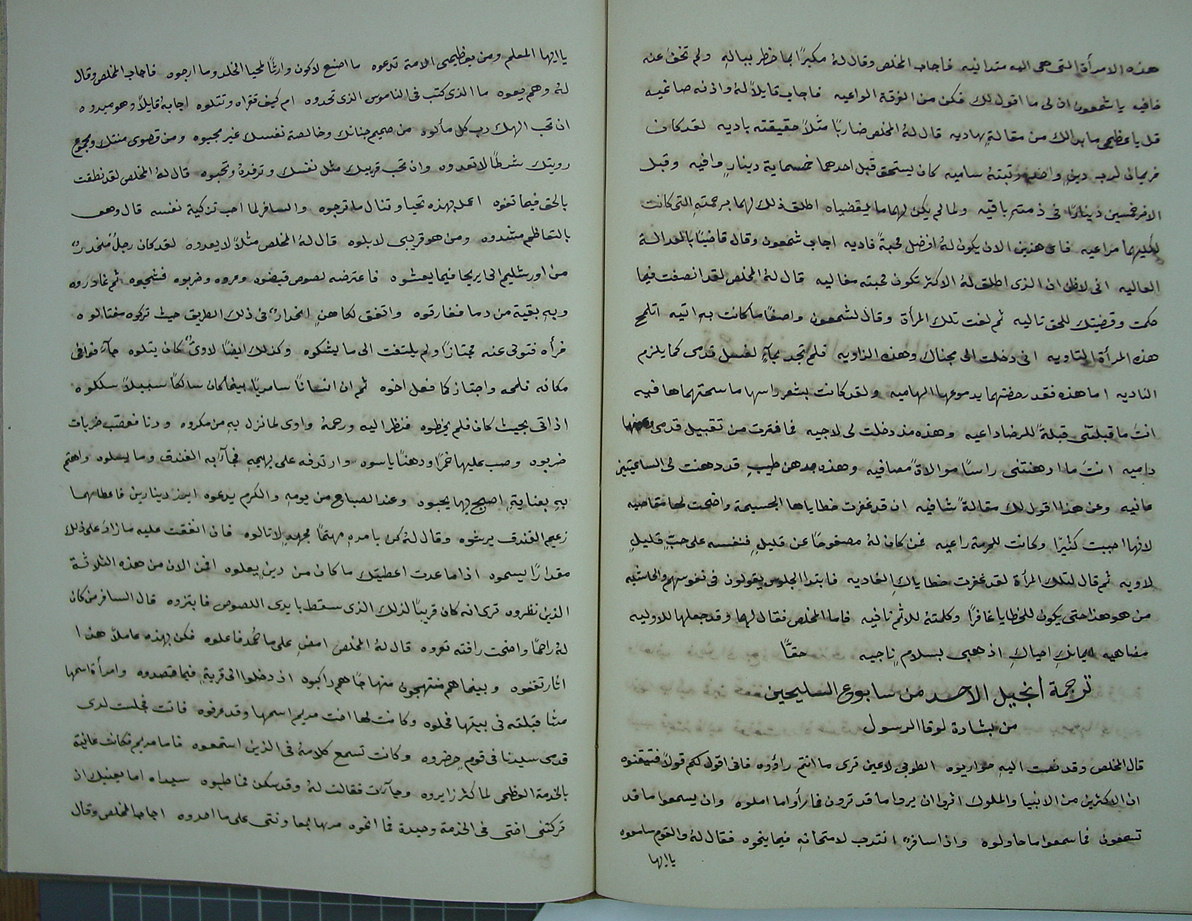 هذه الامرأة التي هي اليه متدانيه فاجابه المخلص وقال له مكبرًا بما خطر بباله ولم تخف عنه
خافيه يا شمعون ان لي ما اقول لك فكن من الفرقة الواعيه فاجاب قايلًا له واذنه صاغيه
قل يا عظيمي ما بدا لك من مقالةٍ هاديه قال له المخلص ضاربًا مثلًا حقيقته باديه لقد كان
غريمان لرب دينٍ سامية كان يستحق قبل احدهما خمسماية دينارٍ مافيه وقبل
الاخر خمسين دينارًا في ذمته باقيه ولما لم يكن لهما ما يقضياه اطلق ذلك لهما برحمته التي كانت
لكليهما مراعيه فاي هذين الان يكون له افضل محبةً فاديه اجاب شمعون وقال قاضيًا بالعدالة
العاليه اني لاظن ان الذي اطلق له الاكثر تكون محبته مغاليه قال له المخلص لقد انصفت فيما
حكمت وقضيتك للحق تاليه ثم لفت تلك المرأة وقال لشمعون واصفًا ما كانت به اتيه اتلمح
هذه المرأة التاويه اني دخلت الى مجناك وهذه الزاويه فلم تجد بماءٍ لغسل قدمي كما يلزم
الناديه اما هذه فقد رحضتهما بدموعها الهاميه ولقد كانت بشعر راسها ما سحتهما هافيه
انت ما قبلتني قبلةً للرضا داعيه وهذه مذ دخلت لي لاجيه فما فترت من تقبيل قدمي
داميه انت ما ادهنتني راسًا موالاةً مصافيه وهذه بدهن طيبٍ قد دهنت لي الساعيتين
عانيه وعن هذا اقول لك مقالةً شافيه ان قد غفرت خطاياها الجسيمة واضحت لها مقاصيه
لانها احببت كثيرًا وكانت للحرمة راعيه فمن كان له مصفوحًا عن قليلٍ فنفسه على حبٍّ قليلٍ
لاويه ثم قال لتلك المرأة لقد غفرت خطاياكِ العاديه فابتدا الجلوس يقولون في نفوسهم والحاشيه
من هو هذا حتى يكون للخطايا غافرًا وكلمته للاثم نافيه فاما المخلص فقال لها وقد جعلها للاوليه
مضاهيه ايمانكِ احياكِ اذهبي بسلامٍ ناجيه حقًّا
ترجمة انجيل الاحد من سابوع السليحين
من بشارة لوقا الرسول
قال المخلص وقد نصت اليه حواريوه الطوبى لاعينٍ ترى ما انتم راؤوه فاني اقول لكم قولًا فتيقنوه
ان الاكثرين من الانبيا والملوك اثروا ان يروا ما قد ترون فما رأوا ما املوه وان يسمعوا ما قد
تسمعون فما سمعوا ما حاولوه واذا سافرٌ انتدب لامتحانه فيما ينحوه فقال له والقوم سامعوه
يا ايها
يا ايها المعلم ومن بعظيمي الامة تدعوه ما اصنع لاكون وارثًا لمحيا الخلد وما ارجوه فاجابه المخلص وقال
له وهم يعوه ما الذي كتب في الناموس الذي تحدوه ام كيف تقراه وتتلوه اجابه قايلًا وهو مبدوه
ان تحب الهك رب كل مألوه من صميم جنانك وخالصة نفسك غير مجبوه ومن قصوى منتك ومجموع
رويتك شرطًا لا تعدوه وان تحب قريبك مثل نفسك وترفده وتحبوه قال له المخلص لقد نطقت
بالحق فيما تفوه اعمل بهذه تحيا وتنال ما ترجوه والسافر لما احب تزكية نفسه قال وهي
بالتعاظم مشدوه ومن هو قريبي لابلوه قال له المخلص مثلًا لا يعدوه لقد كان رجلٌ منحدرٌ
من اورشليم الى يريحا فيما يعشوه فاعترضه لصوص قبضوه وعروه وضربوه فشجوه ثم غادروه
وبه بقية من دما ففارقوه واتفق لكاهنٍ انحدارٌ في ذلك الطريق حيث تركوه مغتالوه
فرأه فتولى عنه مجتازًا ولم يلتفت الى ما يشكوه وكذلك ايضًا لاويٌّ كان يتلوه جاء فوافى
مكانه فلمحه واجتاز كما فعل اخوه ثم ان انسانًا سامريًا بينما كان سالكًا سبيلهٌ سلكوه
اذ اتى بحيث كان فلم يخطوه فنظر اليه ورحمه واوى لما نزل به من مكروه ودنا فعصب ضربات
ضربوه وصب عليها خمرًا ودهنًا ياسوه وارتدفه على بهيمه فجاء به الفندق وما يسلوه واهتم
به بعنايةٍ يحبوه وعند الصباح من يومه والكرم يدعوه ابرز دينارين فاعطاهما
زعيم الفندق يرشوه وقال له كن بامره مهتمًا بجهدٍ لا تالوه فان انفقت عليه ما زاد على ذلك
مقدارًا يسموه اذا ما عدت اعطيتك ما كان من دينٍ يعلوه افمن الان من هذه الثلاثة
الذين نظروه ترى انه كان قريبًا لذلك الذي سقط بايدى اللصوص فابتزوه قال السافر من كان
له راحمًا واضحت رافته تعروه قال له المخلص امض على ما تحمد فاعلوه فكن بهذه عاملًا هذا
اثار تقفوه وبينما هم منتهجون منهاجًا هم راكبوه اذ دخلوا الى قريةٍ فيما قصدوه وامرأة اسمها
مرثا فقبلته في بيتها فحلوه وكانت لها اخت مريم اسمها وقد عرفوه فاتت فجلست لدى
قدمي سيدنا في قومٍ حضروه وكانت تسمع كلامه في الذين استمعوه فاما مريم فكانت عانية
بالخدمة العظمى لما كثر زايروه وجاءت فقالت له وقد سكن مخاطبوه سيداه اما يعنيك ان
تركتني اختي في الخدمة وحيدة فما انحوه مرها بمعاونتي على ما اعدوه اجابها المخلص وقال